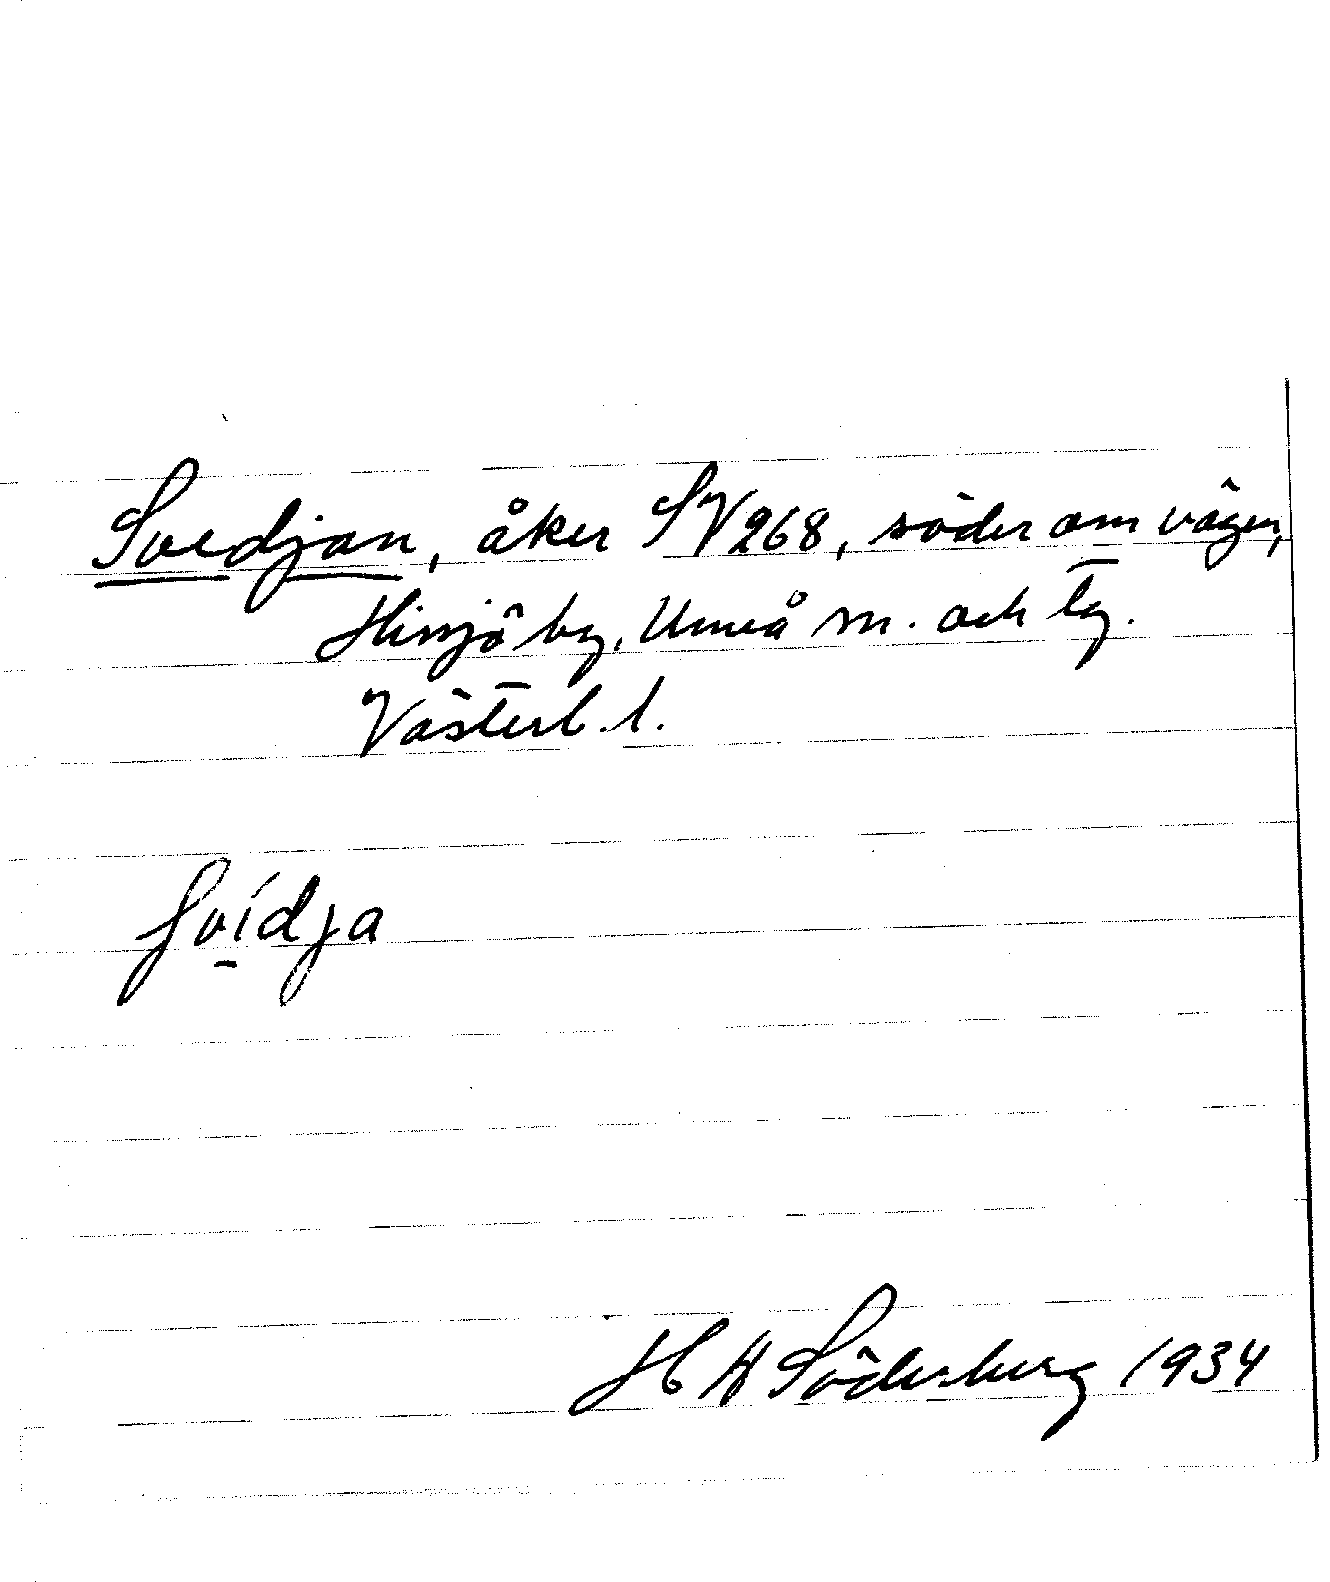 Svedjan, åker SV268, söder om vägen,
Hissjö by, Umeå sn. och tg.
Västerb. l.
svídja
H W Söderberg 1934